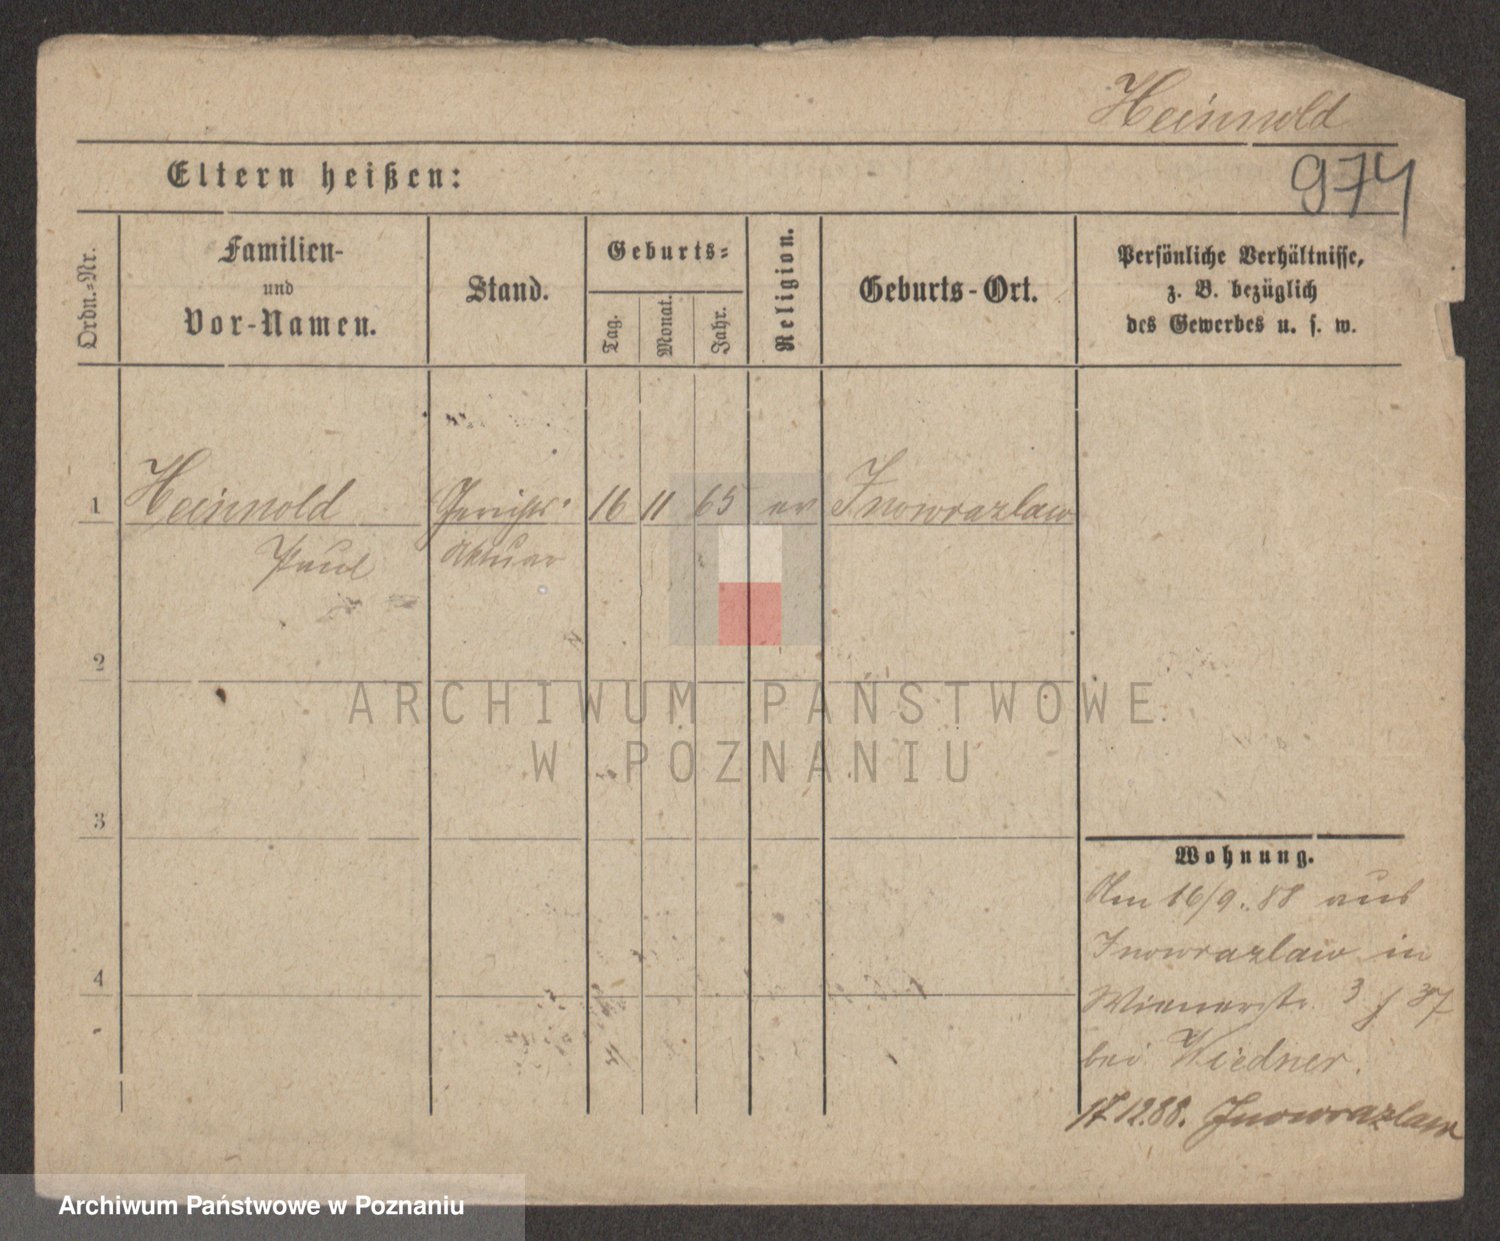 Heinwold
974
Eltern heißen:
Ordn.-Nr.
Familien-
und
Vor-Namen.
Stand.
Geburts-
Tag.
Monat.
Jahr.
Religion.
Geburts-Ort.
Persönliche Verhältnisse,
z. B. bezüglich
des Gewerbes u. s. w.
1 Heinwold Gerichts- 16 11 65 ev Inowrazlaw
Paul Aktuar
2
ARCHIWUM PAŃSTWOWE
W POZNANIU
3
Wohnung.
Am 16/9. 88 aus
Inowrazlaw in
4
Wienerstr. 3 f 37
bei Wiedner.
17.12.88. Inowrazlaw
Archiwum Państwowe w Poznaniu